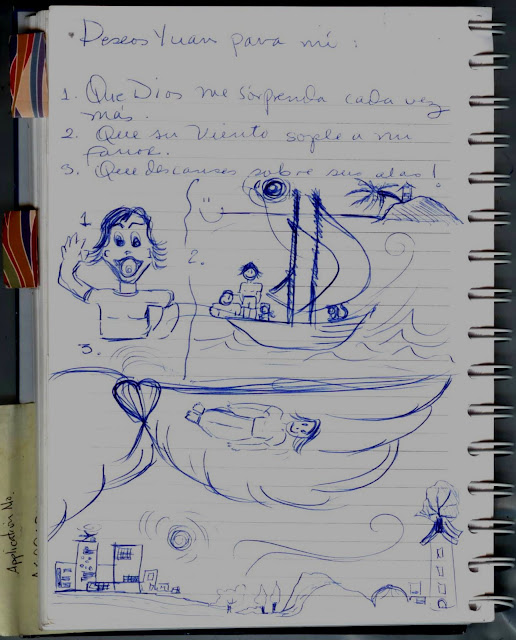 Deseos Yuan para mí:
1. Que Dios me sorprenda cada vez
más.
2. Que su viento sople a mi
favor.
3. Que descanses sobre sus alas!
1.
2.
3.
Application No.